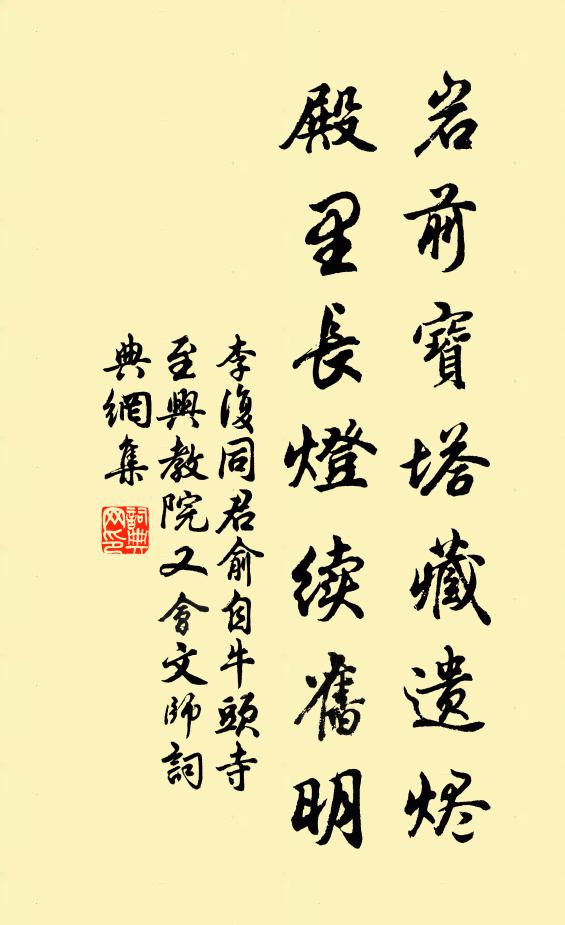 岩前寶塔藏遺烬
殿里長燈續舊明
李復同君俞自牛頭寺
至興教院又會文師詞
典網集
詞典网印